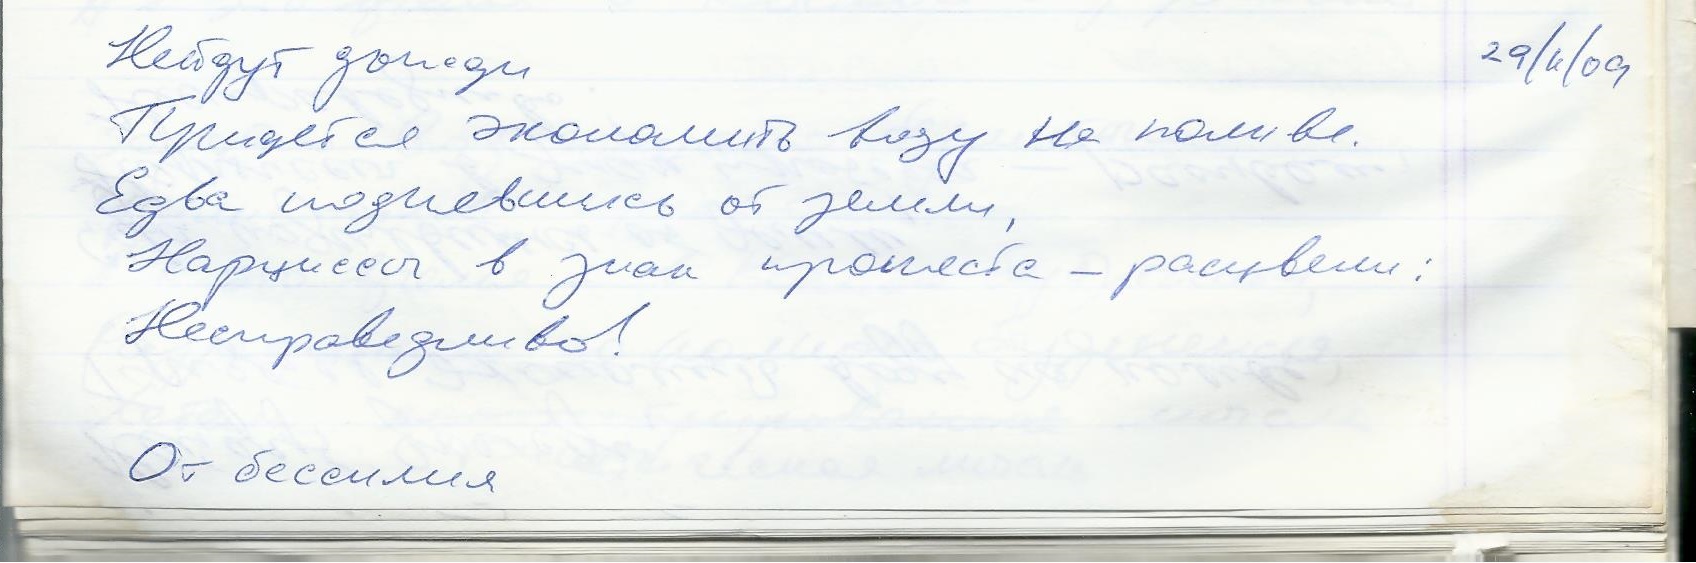 Нейдут дожди
29/IV/09
Придётся экономить воду на поливе.
Едва поднявшись от земли,
Нарциссы в знак протеста – расцвели:
Несправедливо!
От бессилия